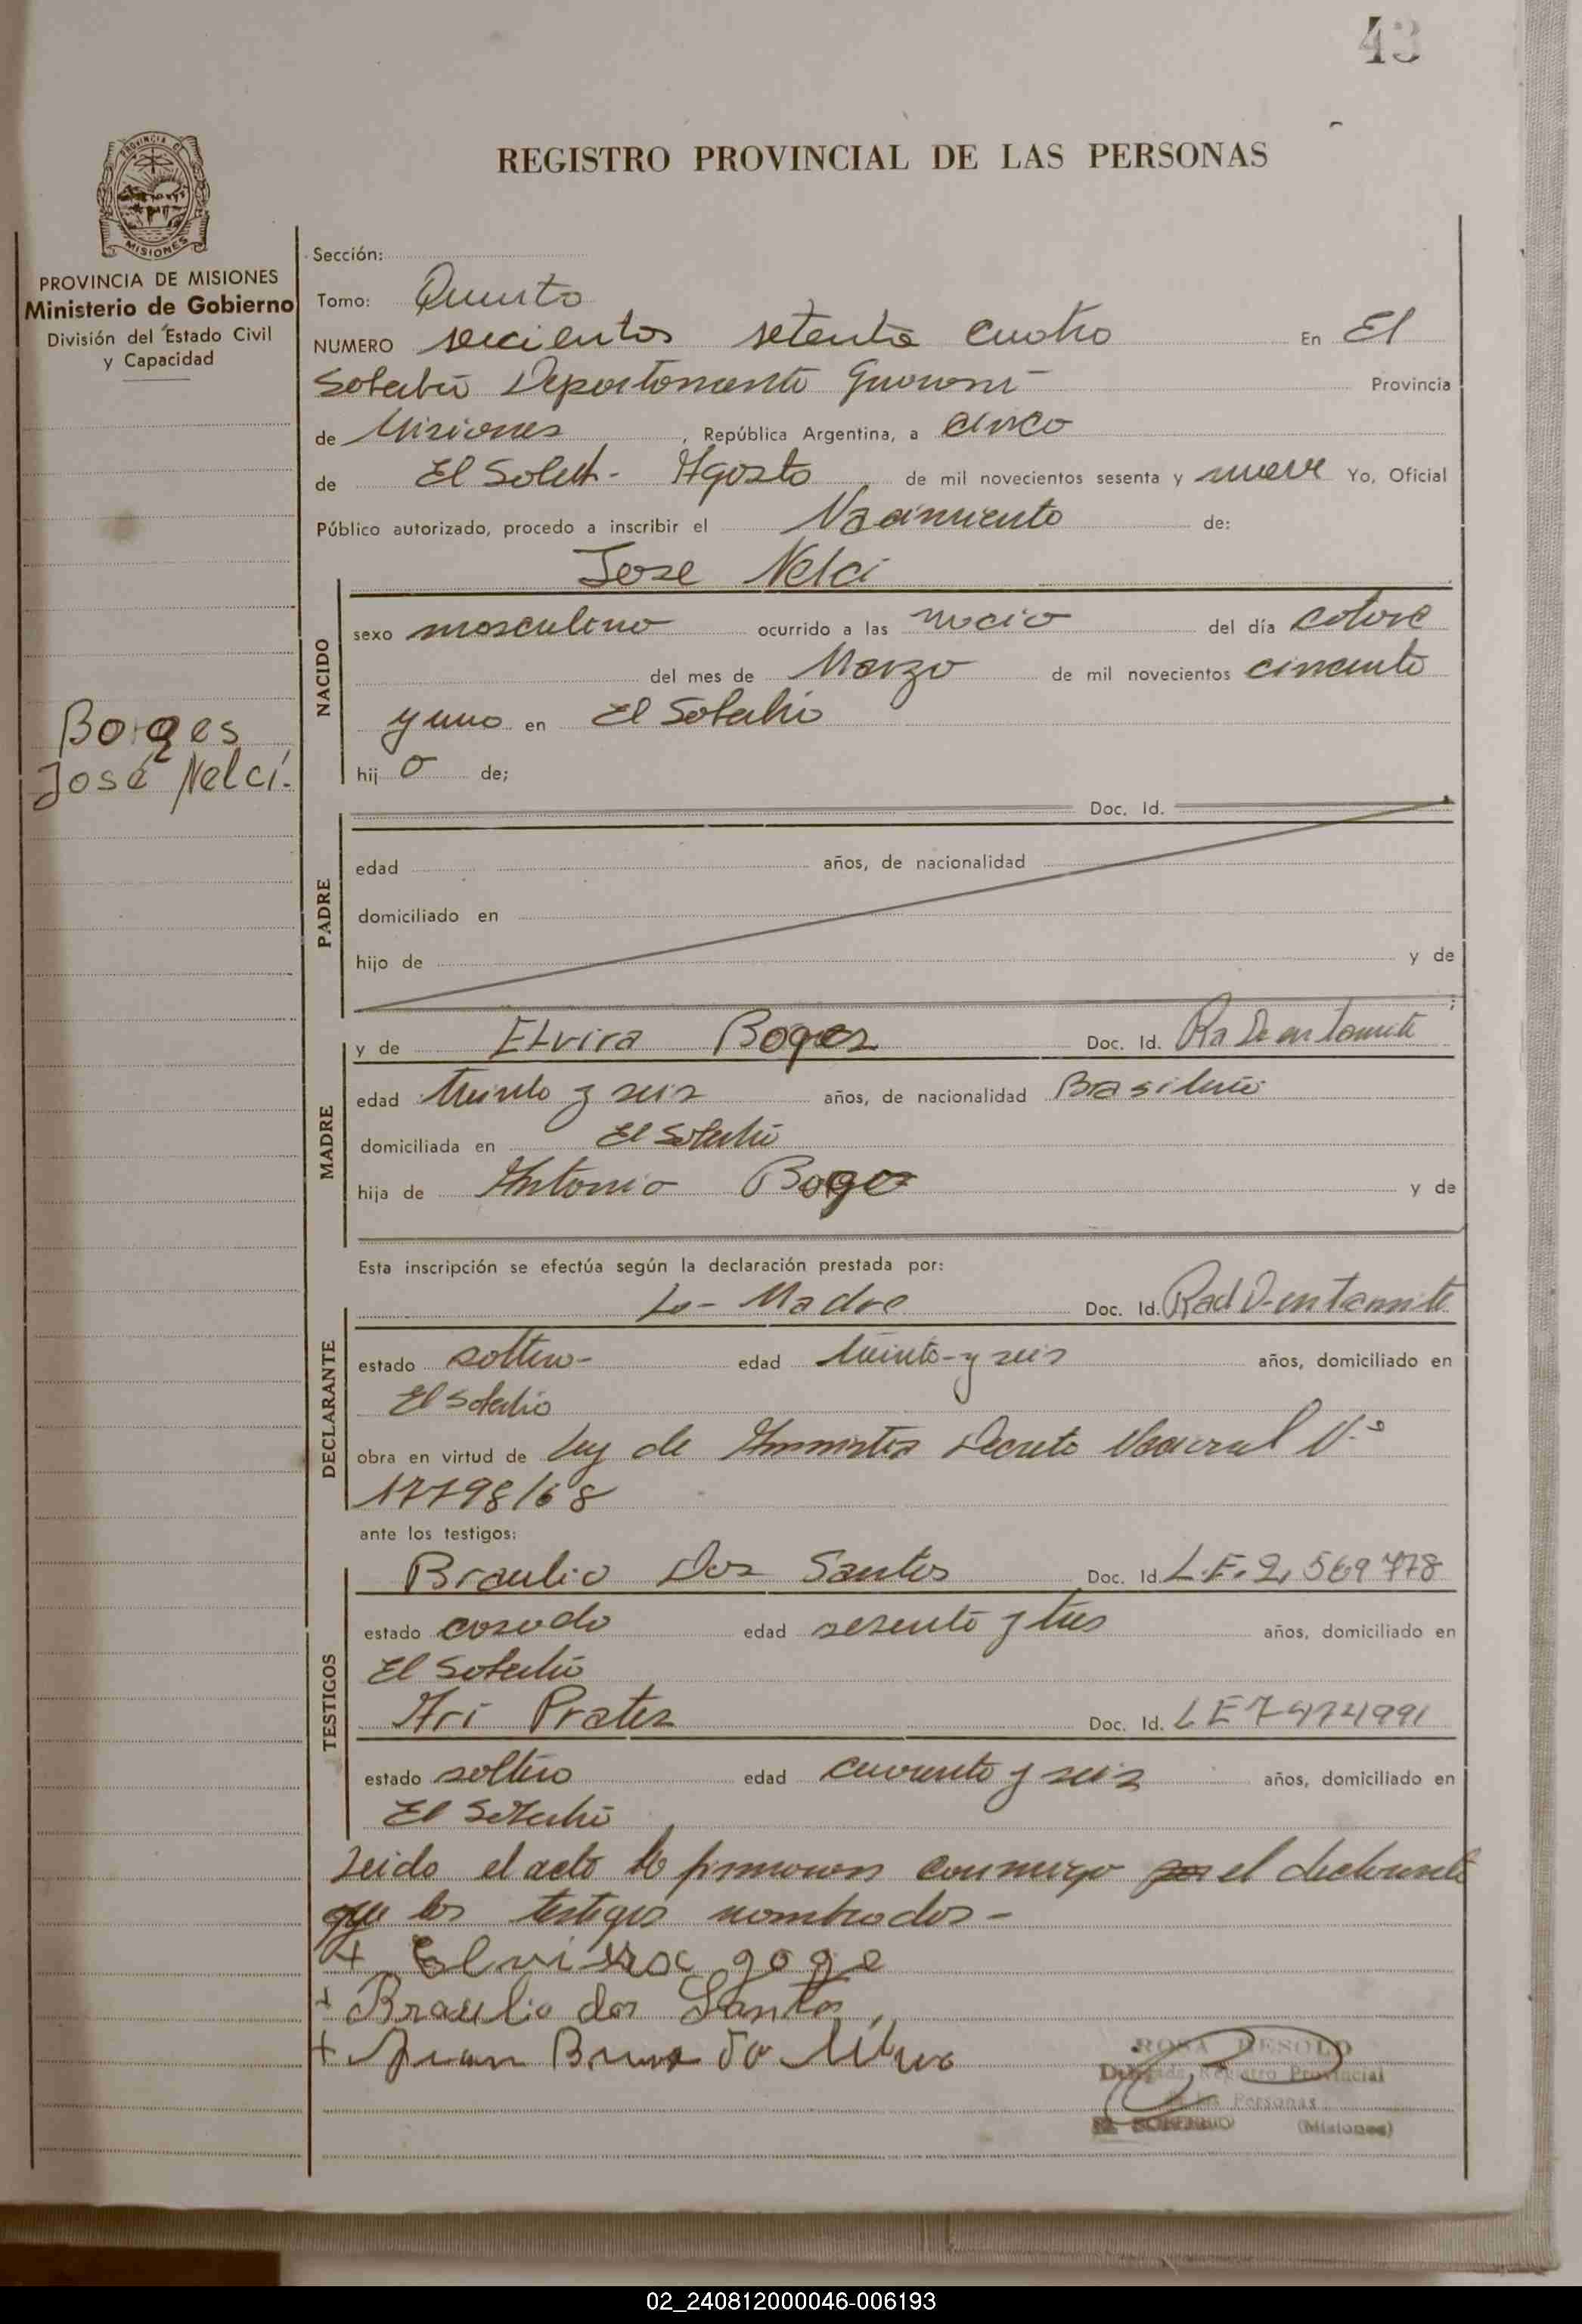 43
REGISTRO PROVINCIAL DE LAS PERSONAS
PROVINCIA DE MISIONES
Ministerio de Gobierno
División del Estado Civil
y Capacidad
Sección:
Tomo: Quinto
NUMERO seicientos setenta cuatro En El
Soberbio Departamento Guarani Provincia
de Misiones, República Argentina, a cinco
de El Sober- Agosto de mil novecientos sesenta y nueve Yo, Oficial
Público autorizado, procedo a inscribir el Nacimiento de:
Jose Nelci
NACIDO
sexo masculino ocurrido a las del día catorce
del mes de Marzo de mil novecientos cincuenta
y uno en El Soberbio
hijo de;
Borges
José Nelcí.
PADRE
Doc. Id.
edad años, de nacionalidad
domiciliado en
hijo de y de
MADRE
y de Elvira Borges Doc. Id. Rad. en tramite
edad treinta y seis años, de nacionalidad Brasileña
domiciliada en El Soberbio
hija de Antonio Borges y de
Esta inscripción se efectúa según la declaración prestada por:
DECLARANTE
La- Madre Doc. Id. Rad en tramite
estado soltera- edad treinta-y seis años, domiciliado en
El Soberbio
obra en virtud de Ley de Amnistia Decreto Nacional N.º
17798/68
ante los testigos:
TESTIGOS
Braulio Dos Santos Doc. Id. L.E. 2,569778
estado casado edad sesenta y tres años, domiciliado en
El Soberbio
Ari Prates Doc. Id. LE 7474991
estado soltero edad cuarenta y seis años, domiciliado en
El Soberbio
Leida el acta la firmaron conmigo el declarante
y los testigos nombrados-
+ Elvira goge
+ Braulio dos Santos
+ Juan
ROSA BESOLD
Delegada Registro Provincial
de las Personas
EL SOBERBIO (Misiones)
02_240812000046-006193